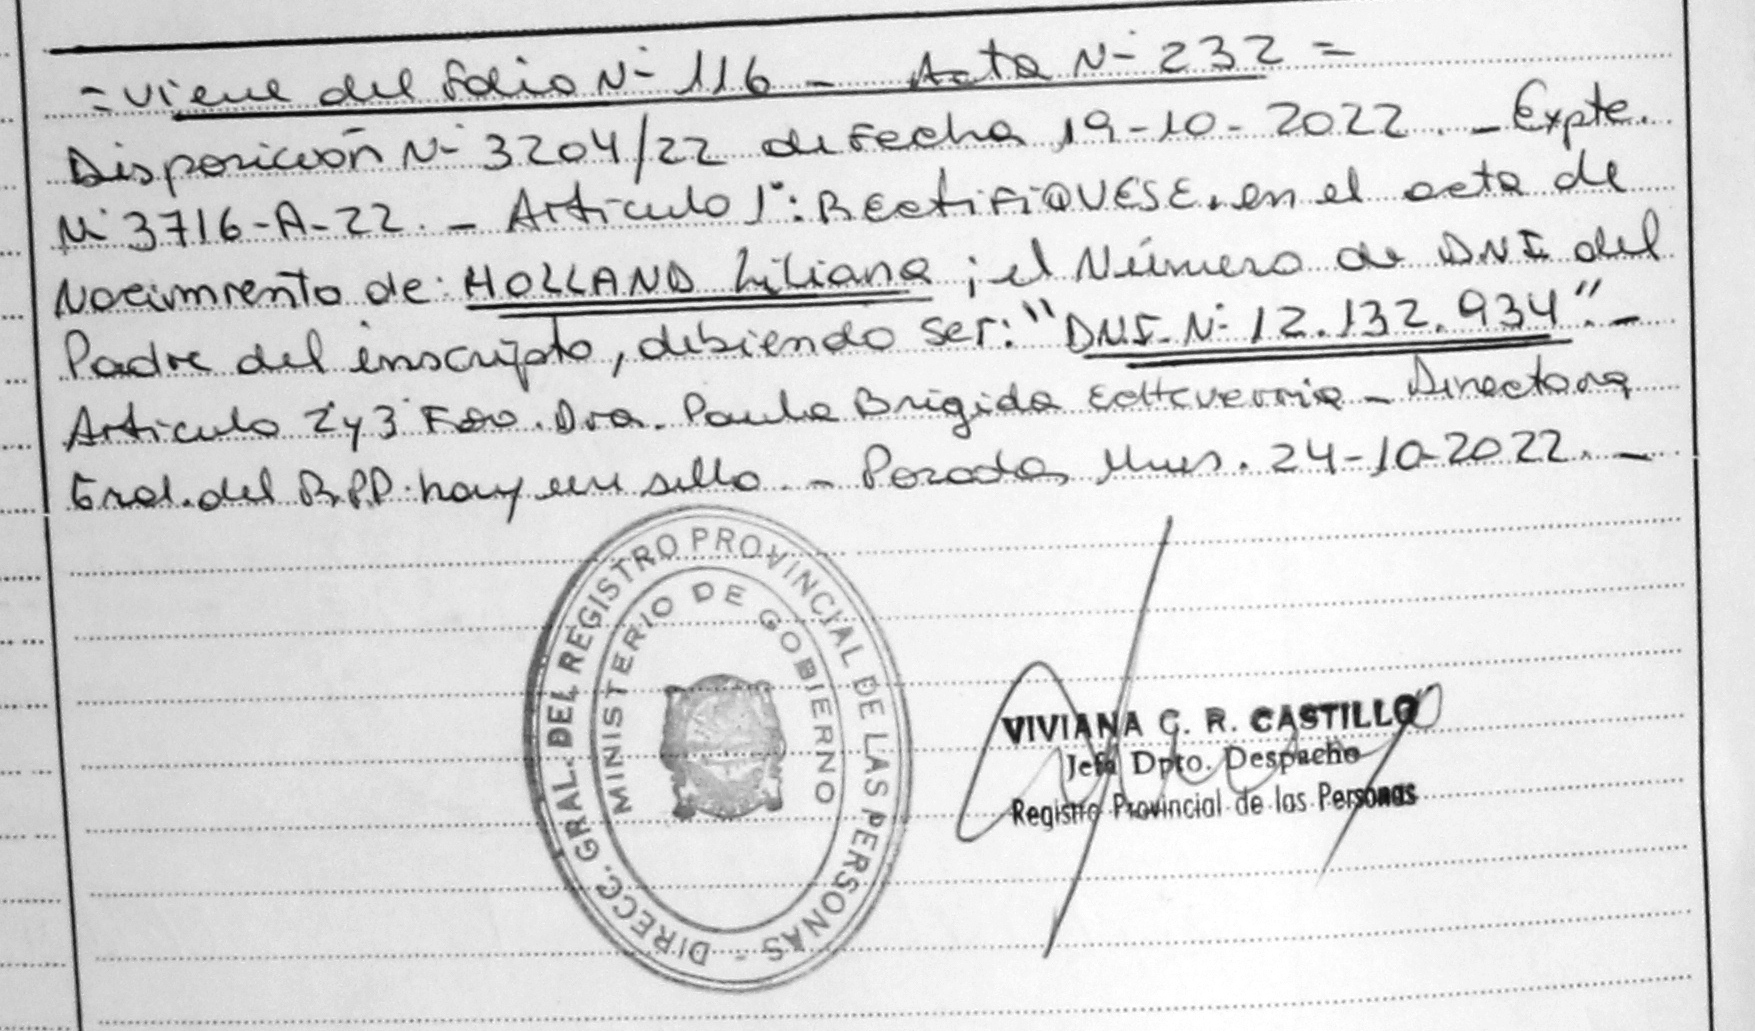 = Viene del Folio N° 116 - Acta N° 232 =
Disposición N° 3204/22 de Fecha 19-10-2022. - Expte.
N° 3716-A-22. - Articulo 1°: RECTIFIQUESE, en el acta de
Nacimiento de: HOLLAND Liliana; el Número de DNI del
Padre del inscripto, debiendo ser: "DNI. N° 12.132.934". -
Articulo 2° y 3° Fdo. Dra. Paula Brigida Echeverria - Directora
Gral. del R.P.P. hay un sello. - Posadas, Mnes. 24-10-2022. -
DIRECC. GRAL. DEL REGISTRO PROVINCIAL DE LAS PERSONAS -
MINISTERIO DE GOBIERNO
VIVIANA C. R. CASTILLO
Jefa Dpto. Despacho
Registro Provincial de las Personas